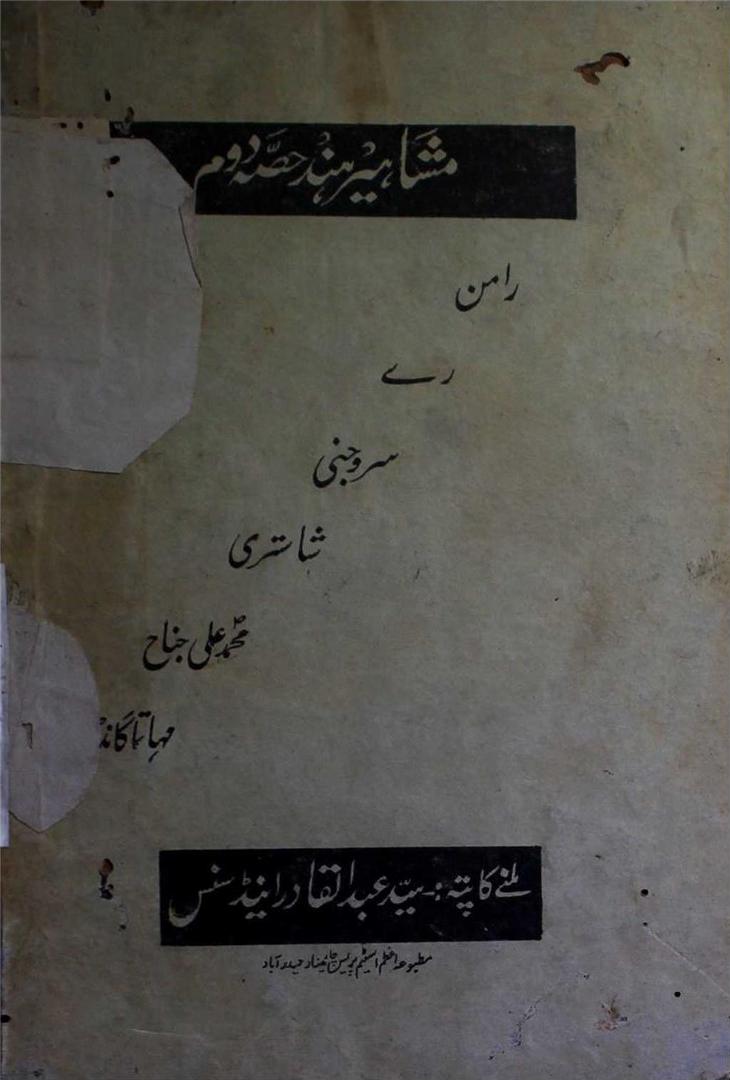 مشاہیر ہند حصّہ دوم
رامن
رے
سروجنی
شاستری
محمد علی جناح
مہاتما گاند
ملنے کا پتہ :- سیّد عبدالقادر اینڈ سنس
مطبوعہ اعظم اسٹیم پریس چارمینار حیدرآباد